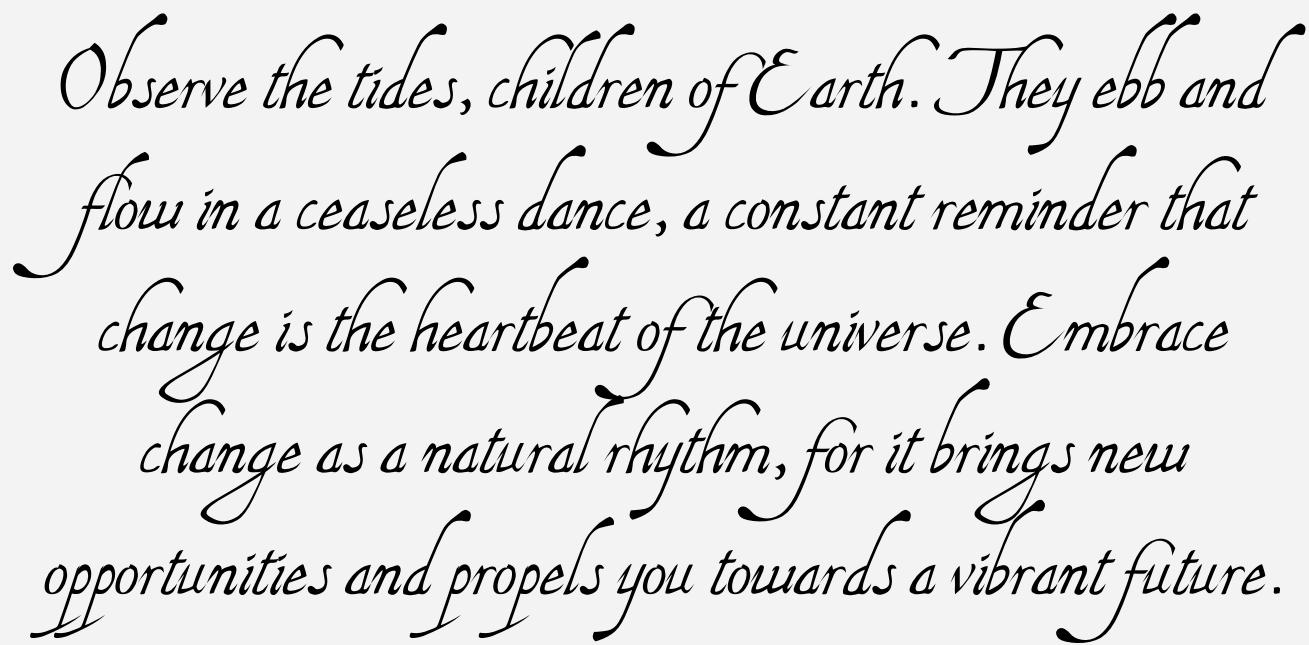 Observe the tides, children of Earth. They ebb and
flow in a ceaseless dance, a constant reminder that
change is the heartbeat of the universe. Embrace
change as a natural rhythm, for it brings new
opportunities and propels you towards a vibrant future.